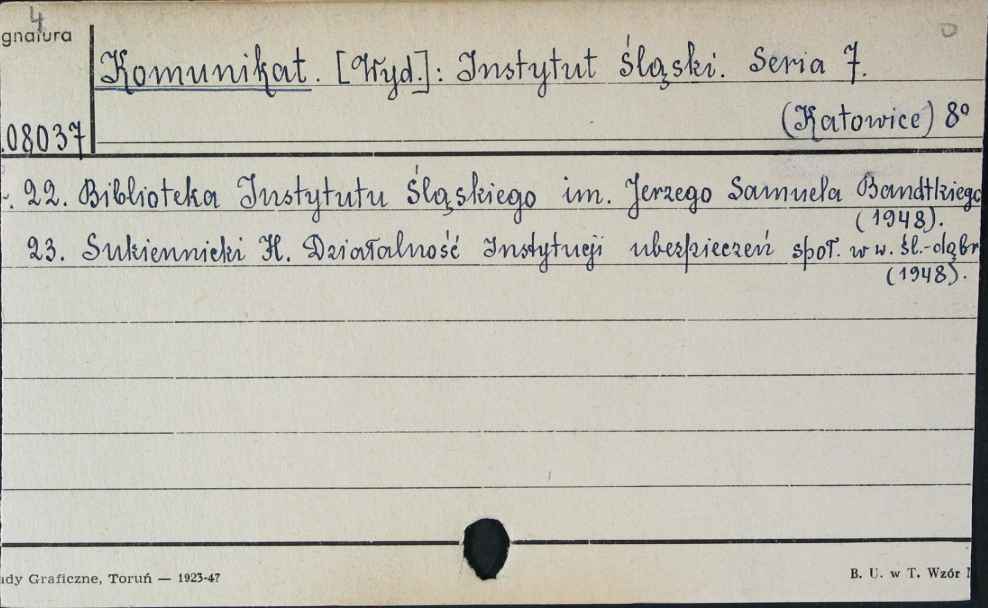 4
gnatura
Komunikat. [Wyd.]: Instytut Śląski. Seria 7.
(Katowice) 8°
.08037
22. Biblioteka Instytutu Śląskiego im. Jerzego Samuela Bandtkiego
(1948).
23. Sukiennicki H. Działalność Instytucji ubezpieczeń społ. w w. śl.-dąbr
(1948).
ady Graficzne, Toruń — 1923-47
B. U. w T. Wzór